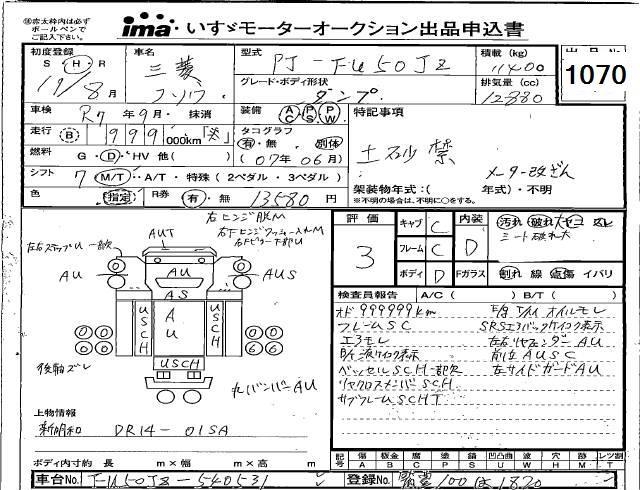 ㊟赤太枠内は必ず
ボールペンで
ご記入下さい。
ima いすゞモーターオークション出品申込書
初度登録 車名 型式 積載 (kg) 出品No.
S H R 三菱 PJ-FU50JZ 11400
17/8月 フソウ グレード・ボディ形状 排気量 (cc) 1070
ダンプ 12880
車検 R7年9月・抹消 装備 AC PS PW 特記事項
走行 B 999 000km タコグラフ
有・無 別体 土砂禁
燃料 G・D・HV 他( ) (07年06月)
シフト 7 M/T・A/T・特殊(2ペダル・3ペダル) メーター改ざん
色 指定 R券 有・無 13580円 架装物年式:( 年式)・不明
※不明の場合は、不明に○をする。
右ヒンジ脱M
右下ヒンジ
左右ステップU一部欠 AUT
AU AU AUS
AS
USCH AU USCH
USCH
後軸ズレ
左バンパーAU
評価 キャブ C 内装 汚れ 破れ大 ヤコゲ スレ
3 フレーム C D シート破れ大
ボディ D Fガラス 割れ 線 点傷 イバリ
検査員報告 A/C( ) B/T( )
オド999999km T/M オイルモレ
フレームUSC SRSエアバックケイコク表示
エアモレ 左右リヤフェンダーAU
ベッセルSCH一部欠 左サイドガードAU
リヤクロスメンバSCH
サブフレームSCHT
上物情報
新明和 DR14-01SA
記号 傷 板金 腐 補修 錆 凹凸曲 波 穴 跡 レンズ割
A B C P S U W H M T
ボディ内寸約 長 m×幅 m×高 m
車台No. FU50JZ-540531 登録No. 100は1820